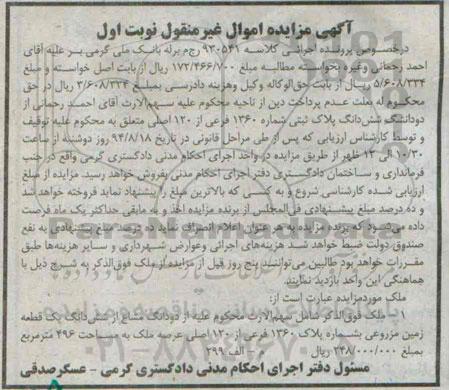 آگهی مزایده اموال غیرمنقول نوبت اول
درخصوص پرونده اجرائی کلاسه ۹۳۰۵۴۱ رج‌م برله بانک ملی گرمی بر علیه آقای
احمد رحمانی وغیره بخواسته مطالبه مبلغ ۱۷۲/۴۶۶/۷۰۰ ریال از بابت اصل خواسته و مبلغ
۵/۶۰۸/۳۳۴ ریال از بابت حق‌الوکاله وکیل وهزینه دادرسی بمبلغ ۳/۶۰۸/۳۳۴ ریال در حق
محکوم له بعلت عدم پرداخت دین از ناحیه محکوم علیه سهم‌الارث آقای احمد رحمانی از
دودانگ ششدانگ پلاک ثبتی شماره ۱۳۶۰ فرعی از ۱۲۰ اصلی متعلق به محکوم علیه توقیف
و توسط کارشناس ارزیابی که پس از طی مراحل قانونی در تاریخ ۹۴/۸/۱۸ روز دوشنبه از ساعت
۱۰/۳۰ الی ۱۲ ظهر از طریق مزایده در واحد اجرای احکام مدنی دادگستری گرمی واقع در جنب
فرمانداری و ساختمان دادگستری دفتر اجرای احکام مدنی بفروش خواهد رسید. مزایده از مبلغ
ارزیابی شده کارشناسی شروع و به کسی که بالاترین مبلغ را پیشنهاد نماید فروخته خواهد شد
و ده درصد مبلغ پیشنهادی فی‌المجلس از برنده مزایده اخذ و به مابقی حداکثر یک ماه فرصت
داده می‌شود که برنده مزایده به هر عنوان اعلام انصراف نماید ده درصد مبلغ پیشنهادی به نفع
صندوق دولت ضبط خواهد شد هزینه‌های اجرائی وعوارض شهرداری و سایر هزینه‌ها طبق
مقررات خواهد بود طالبین می‌توانند پنج روز قبل از مزایده از ملک فوق‌الذکر به شرح ذیل با
هماهنگی این واحد بازدید نمایند.
ملک موردمزایده عبارت است از:
۱- ملک فوق‌الذکر شامل سهم‌الارث محکوم علیه از دودانگ مشاع از ششدانگ یک قطعه
زمین مزروعی بشماره پلاک ۱۳۶۰ فرعی از ۱۲۰ اصلی عرصه ملک به مساحت ۴۹۶ مترمربع
بمبلغ ۲۴۸/۰۰۰/۰۰۰ ریال الف ۲۹۹
مسئول دفتر اجرای احکام مدنی دادگستری گرمی - عسگرصدقی
۰۲۱-۸۸۳۴۹۶۷۰